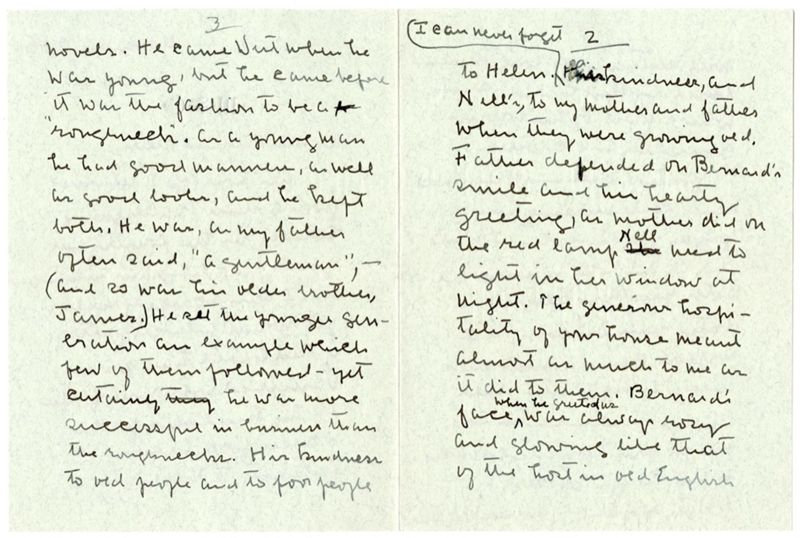 3
novels. He came West when he
was young, but he came before
it was the fashion to be a
"roughneck". As a young man
he had good manners, as well
as good looks, and he kept
both. He was, as my father
often said, "a gentleman", —
(and so was his older brother,
James.) He set the younger gen-
eration an example which
few of them followed - yet
certainly he was more
successful in business than
the roughnecks. His kindness
to old people and to poor people
(I can never forget 2
to Helen. his kindness, and
Nell's, to my mother and father
when they were growing old.
Father depended on Bernard's
smile and his hearty
greeting, as mother did on
the red lamp Nell used to
light in her window at
night. The generous hospi-
tality of your house meant
almost as much to me as
it did to them. Bernard's
face, when he greeted us, was always rosy
and glowing like that
of the host in old English